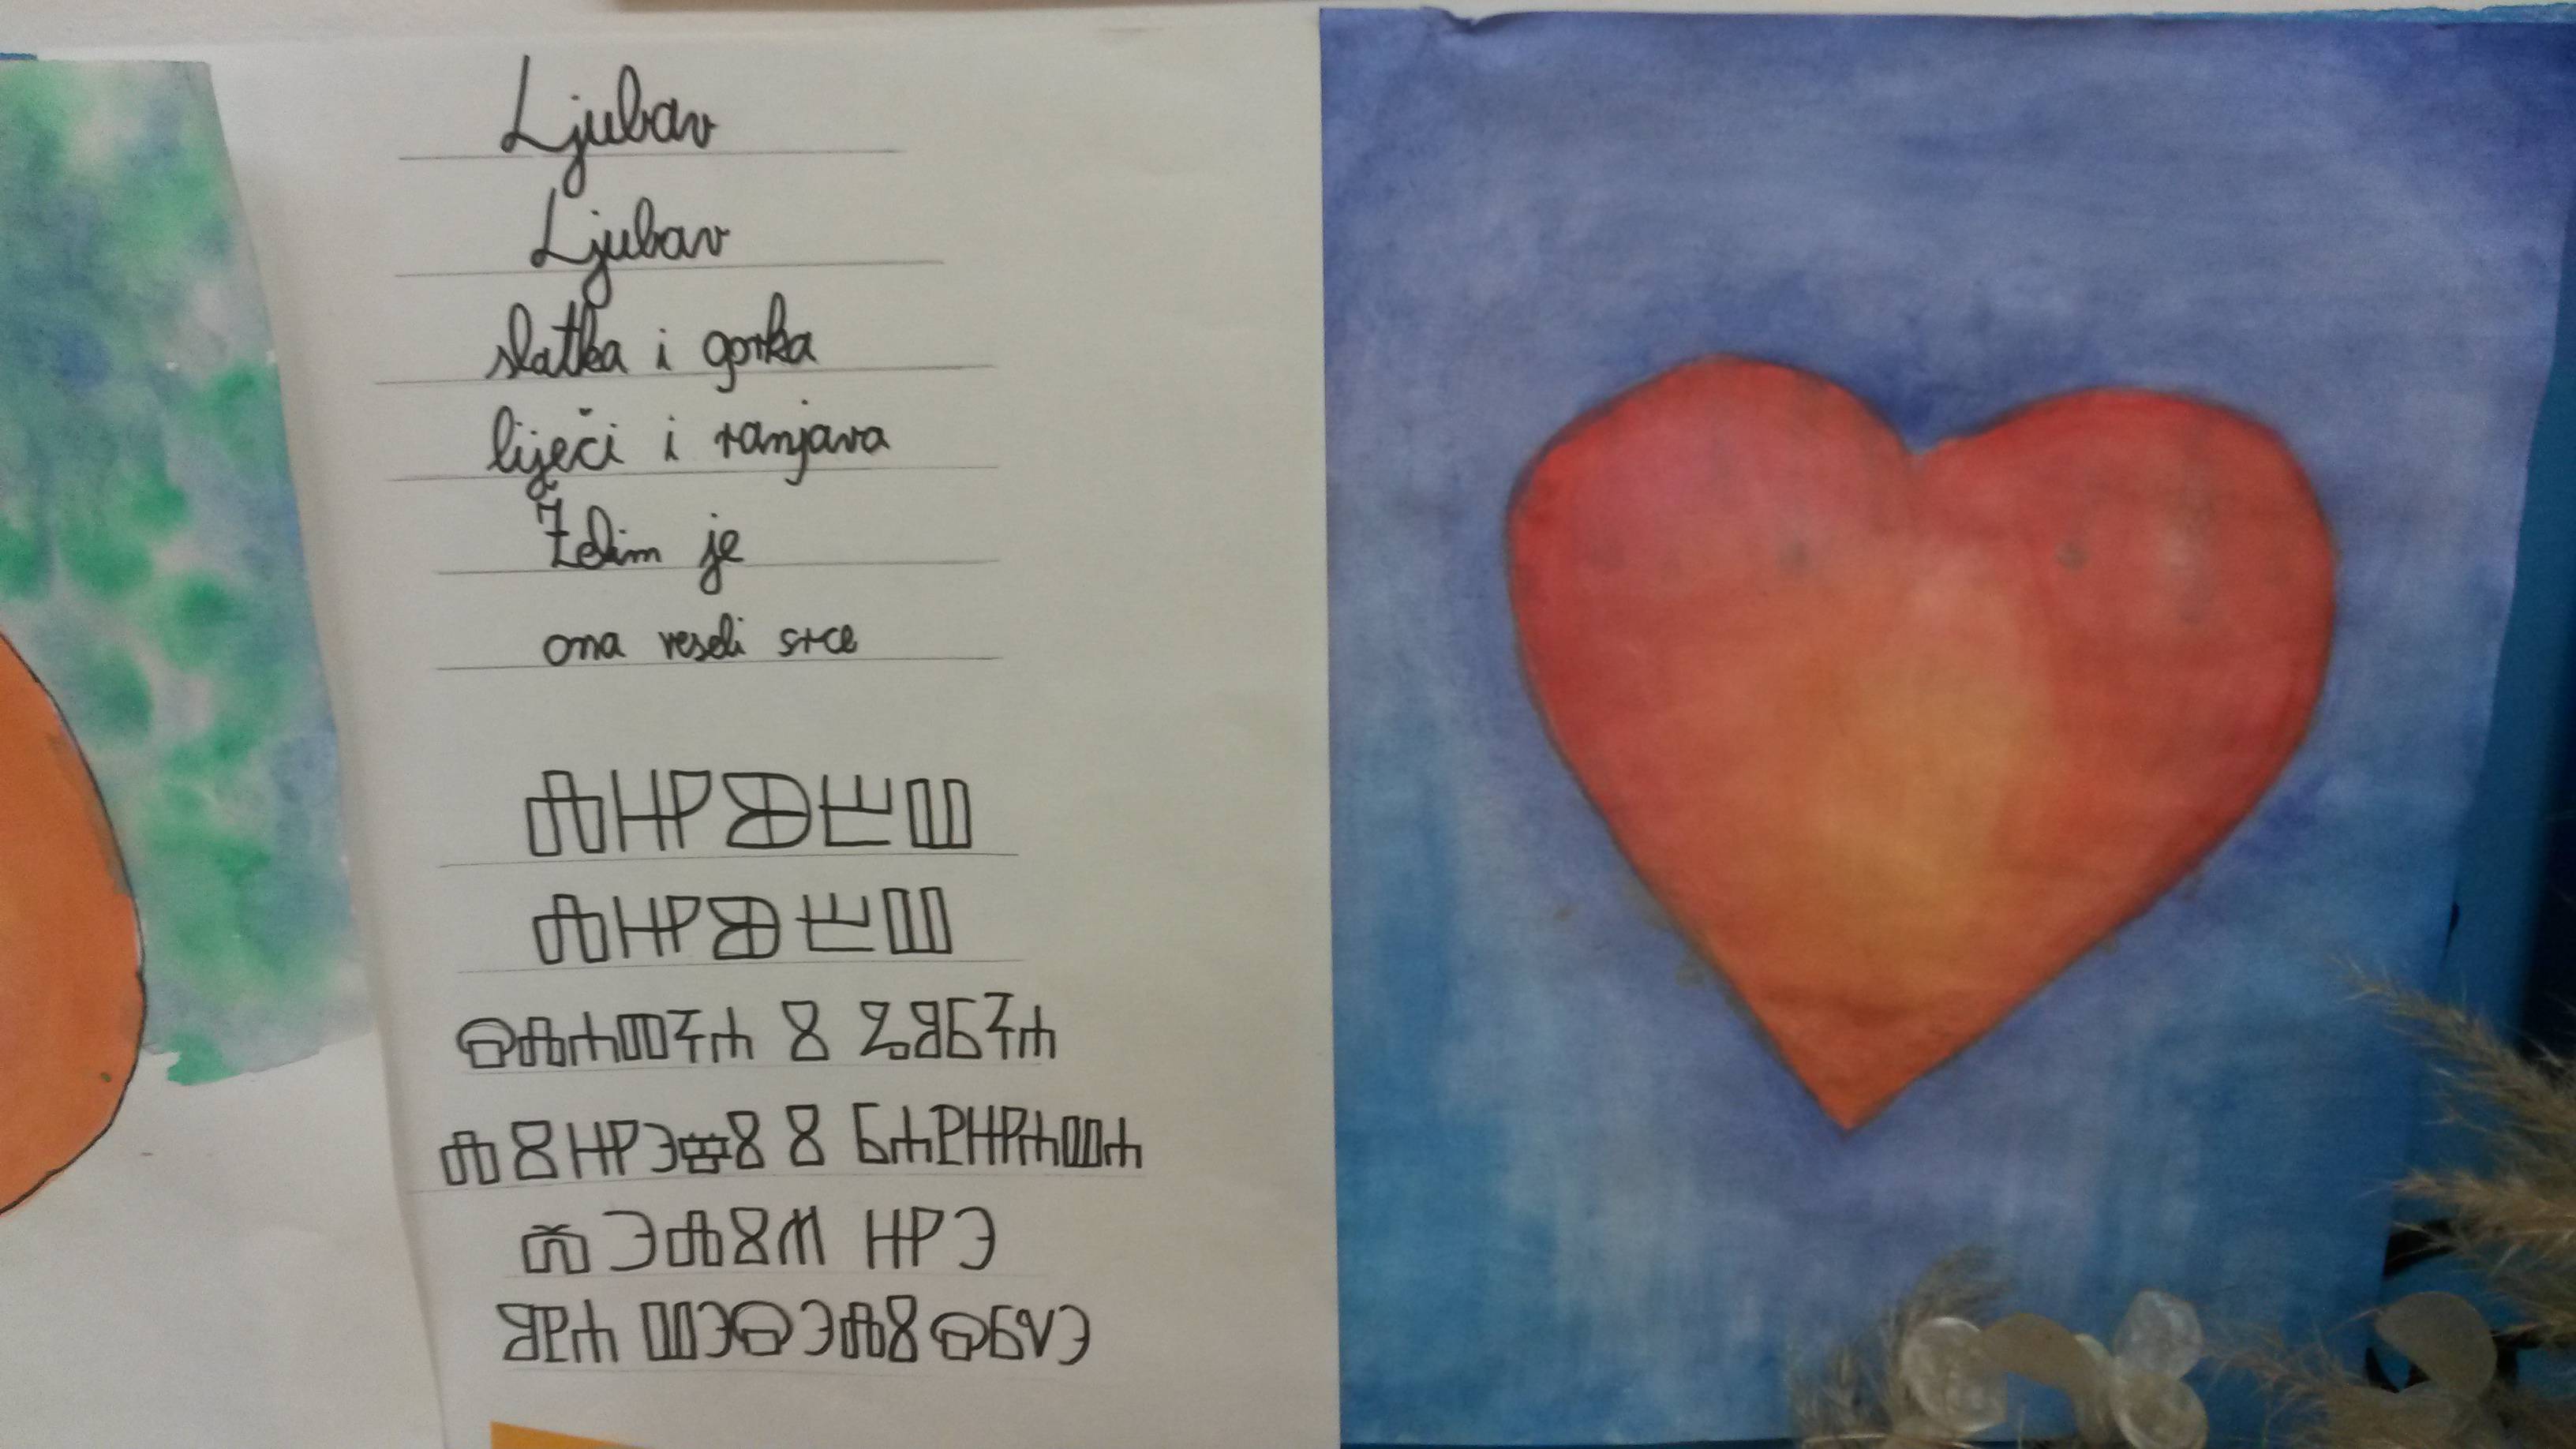 Ljubav
Ljubav
slatka i gorka
liječi i ranjava
Želim je
ona veseli srce
ⰎⰌⰖⰁⰂ
ⰎⰌⰖⰁⰂ
ⰔⰎⰀⰕⰍⰀ Ⰻ ⰃⰑⰓⰍⰀ
ⰎⰋⰌⰅⰝⰋ Ⰻ ⰓⰀⰐⰌⰀⰂⰀ
ⰆⰅⰎⰋⰏ ⰌⰅ
ⰑⰐⰀ ⰂⰅⰔⰅⰎⰋⰔⰓⰜⰅ